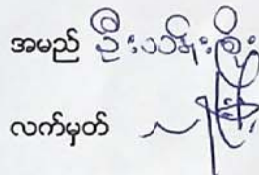 အမည် ဦးသန်းစိုး
လက်မှတ်